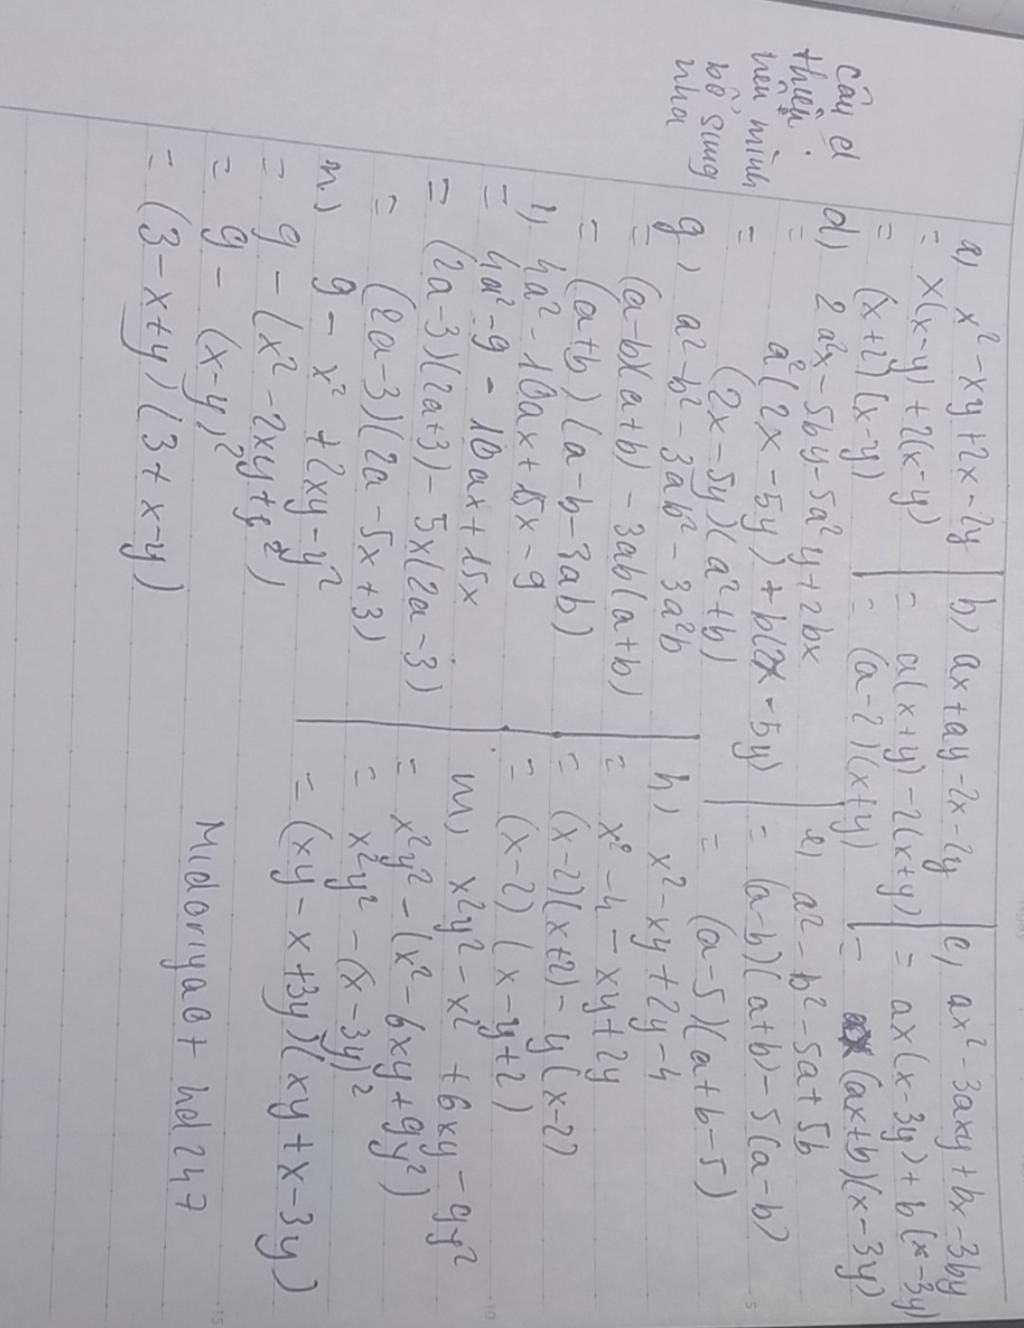 câu d
thiếu
nên mình
bổ sung
nha
a, x² - xy + 2x - 2y
= x(x-y) + 2(x-y)
= (x+2)(x-y)
b) ax + ay - 2x - 2y
= a(x+y) - 2(x+y)
= (a-2)(x+y)
c, ax² - 3axy + bx - 3by
= ax(x-3y) + b(x-3y)
= (ax+b)(x-3y)
d, 2a²x - 5by - 5a²y + 2bx
= a²(2x - 5y) + b(2x - 5y)
= (2x-5y)(a²+b)
e, a² - b² - 5a + 5b
= (a-b)(a+b) - 5(a-b)
= (a-5)(a+b-5)
g, a² - b² - 3ab² - 3a²b
= (a-b)(a+b) - 3ab(a+b)
= (a+b)(a-b-3ab)
h, x² - xy + 2y - 4
= x² - 4 - xy + 2y
= (x-2)(x+2) - y(x-2)
= (x-2)(x-y+2)
i, 4a² - 10ax + 15x - 9
= 4a² - 9 - 10ax + 15x
= (2a-3)(2a+3) - 5x(2a-3)
= (2a-3)(2a-5x+3)
m, x²y² - x² + 6xy - 9y²
= x²y² - (x² - 6xy + 9y²)
= x²y² - (x-3y)²
= (xy - x + 3y)(xy + x - 3y)
n, 9 - x² + 2xy - y²
= 9 - (x² - 2xy + y²)
= 9 - (x-y)²
= (3 - x + y)(3 + x - y)
Midoriyaot hd247